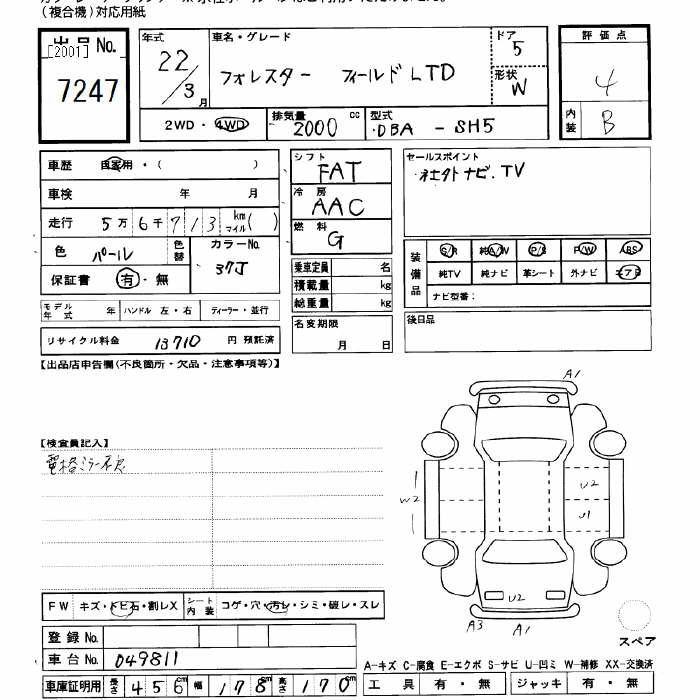 (複合機)対応用紙
出品No.
[2001]
7247
年式 22/3月
車名・グレード フォレスター フィールドLTD
ドア 5
形状 W
2WD・4WD
排気量 2000 cc
型式 DBA - SH5
評価点 4
内装 B
車歴 自家用・( )
車検 年 月
走行 5万6千713 kmマイル( )
色 パール 色替 カラーNo. 37J
保証書 有・無
モデル年式 年 ハンドル 左・右 ディーラー・並行
リサイクル料金 13710 円 預託済
シフト FAT
冷房 AAC
燃料 G
乗車定員 名
積載量 kg
総重量 kg
名変期限 月 日
セールスポイント
社外ナビ.TV
装備品 S/R 純A/W P/S P/W ABS
純TV 純ナビ 革シート 外ナビ エアB
ナビ型番:
後日品
【出品店申告欄(不良箇所・欠品・注意事項等)】
【検査員記入】
電格ミラー不良
A1
W2
U2
U1
U2
A3
A1
スペア
FW キズ・トビ石・割レX シート内装 コゲ・穴・汚レ・シミ・破レ・スレ
登録No.
車台No. 049811
車庫証明用 長さ 456cm 幅 178cm 高さ 170cm
A-キズ C-腐食 E-エクボ S-サビ U-凹ミ W-補修 XX-交換済
工具 有・無 ジャッキ 有・無